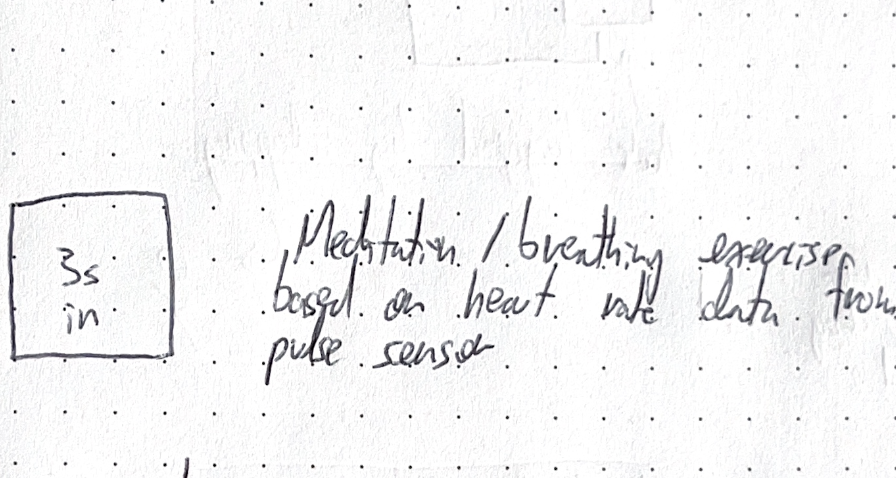 3s
in
Meditation / breathing exercise
based on heart rate data from
pulse sensor